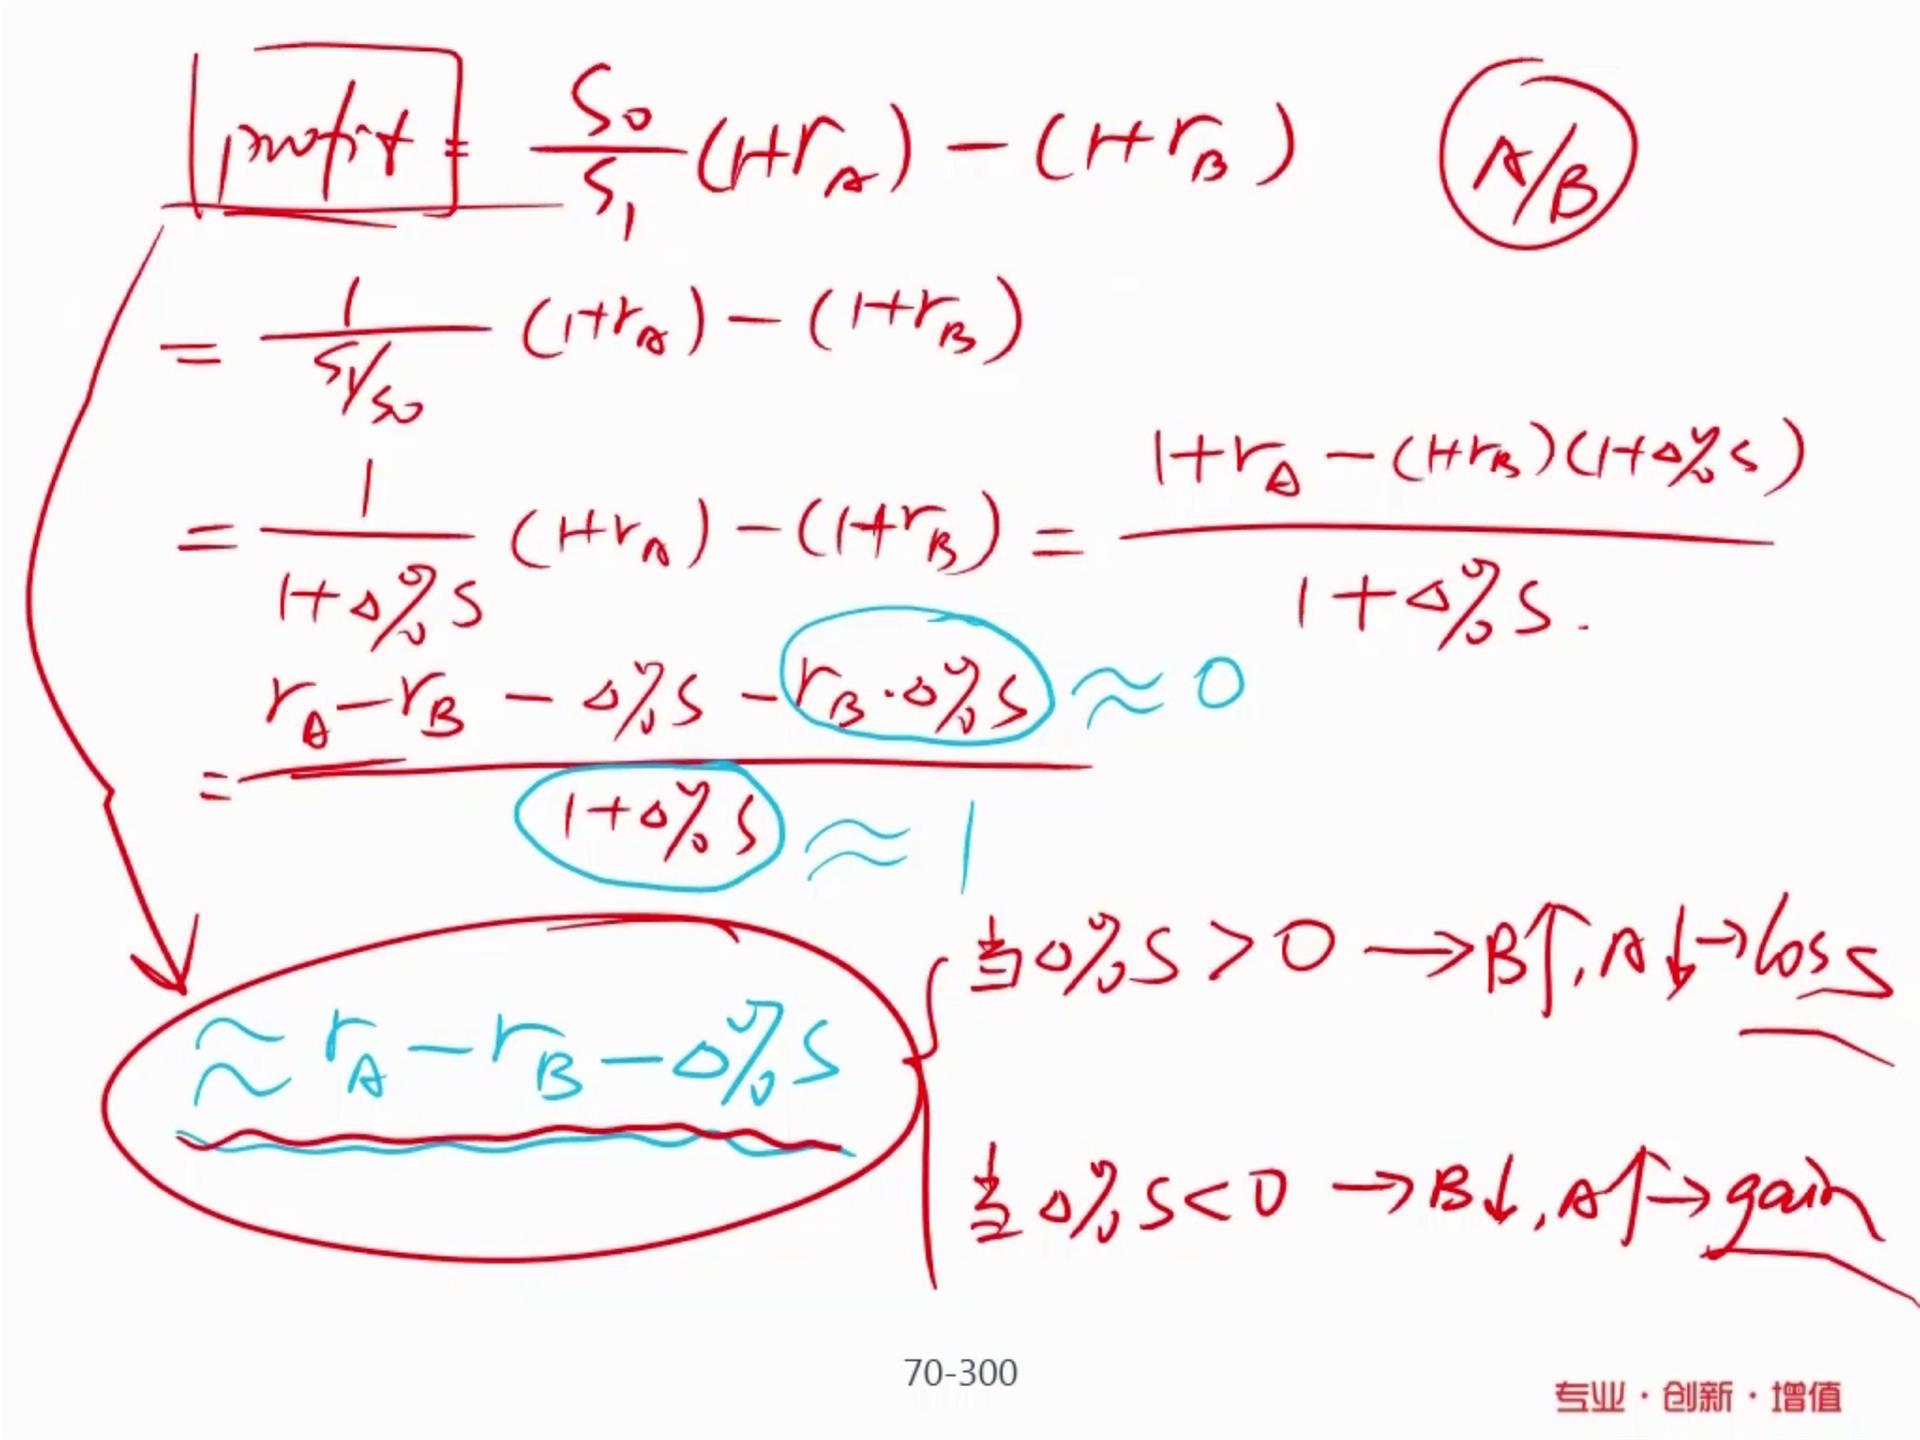 profit = S0/S1 (1+rA) − (1+rB) A/B
= 1/(S1/S0) (1+rA) − (1+rB)
= 1/(1+Δ%S) (1+rA) − (1+rB) = (1+rA − (1+rB)(1+Δ%S))/(1+Δ%S).
= (rA − rB − Δ%S − rB·Δ%S)/(1+Δ%S) ≈ 0 ≈ 1
≈ rA − rB − Δ%S
当Δ%S > 0 → B↑, A↓ → loss
当Δ%S < 0 → B↓, A↑ → gain
70-300
专业·创新·增值